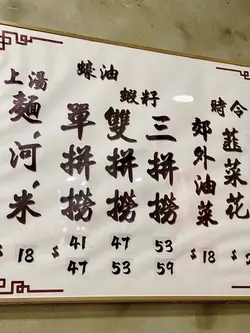 時令
韮菜花
$
郊外油菜
$18
蠔油
蝦籽
三拼撈
53
59
雙拼撈
47
53
單拼撈
$ 41
$ 47
上湯
麵、河、米
$ 18